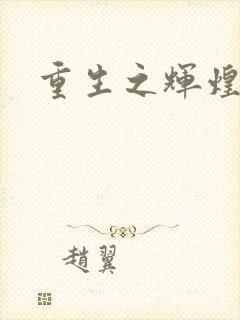 重生之輝煌
趙翼